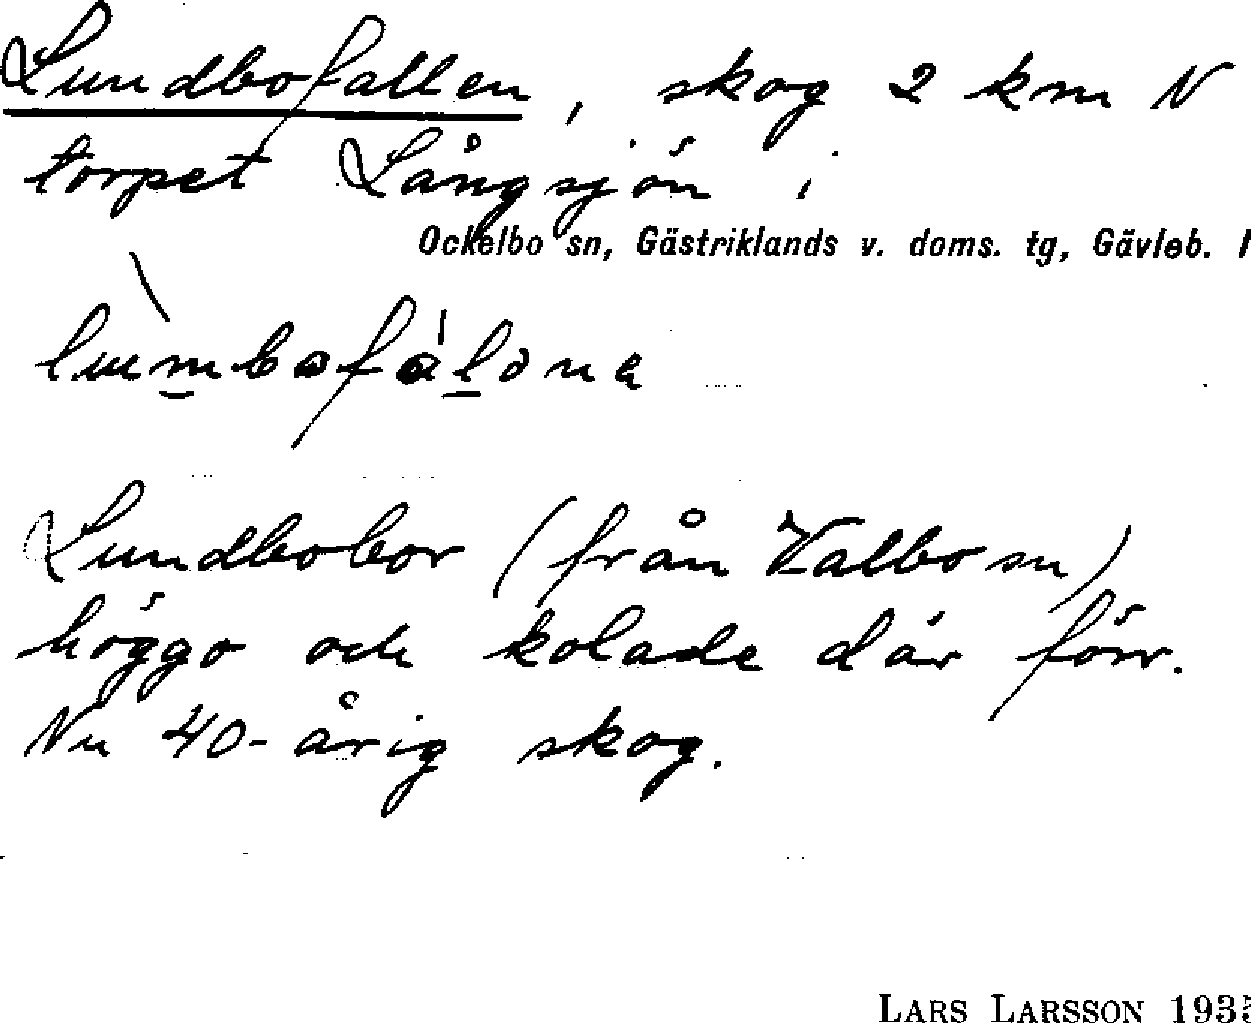 Lundbofallen, skog 2 km N
torpet Långsjön i
Ockelbo sn, Gästriklands v. doms. tg, Gävleb.
Lundbobor (från Valbo sn)
höggo och kolade där förr.
Nu 40-årig skog.
LARS LARSSON